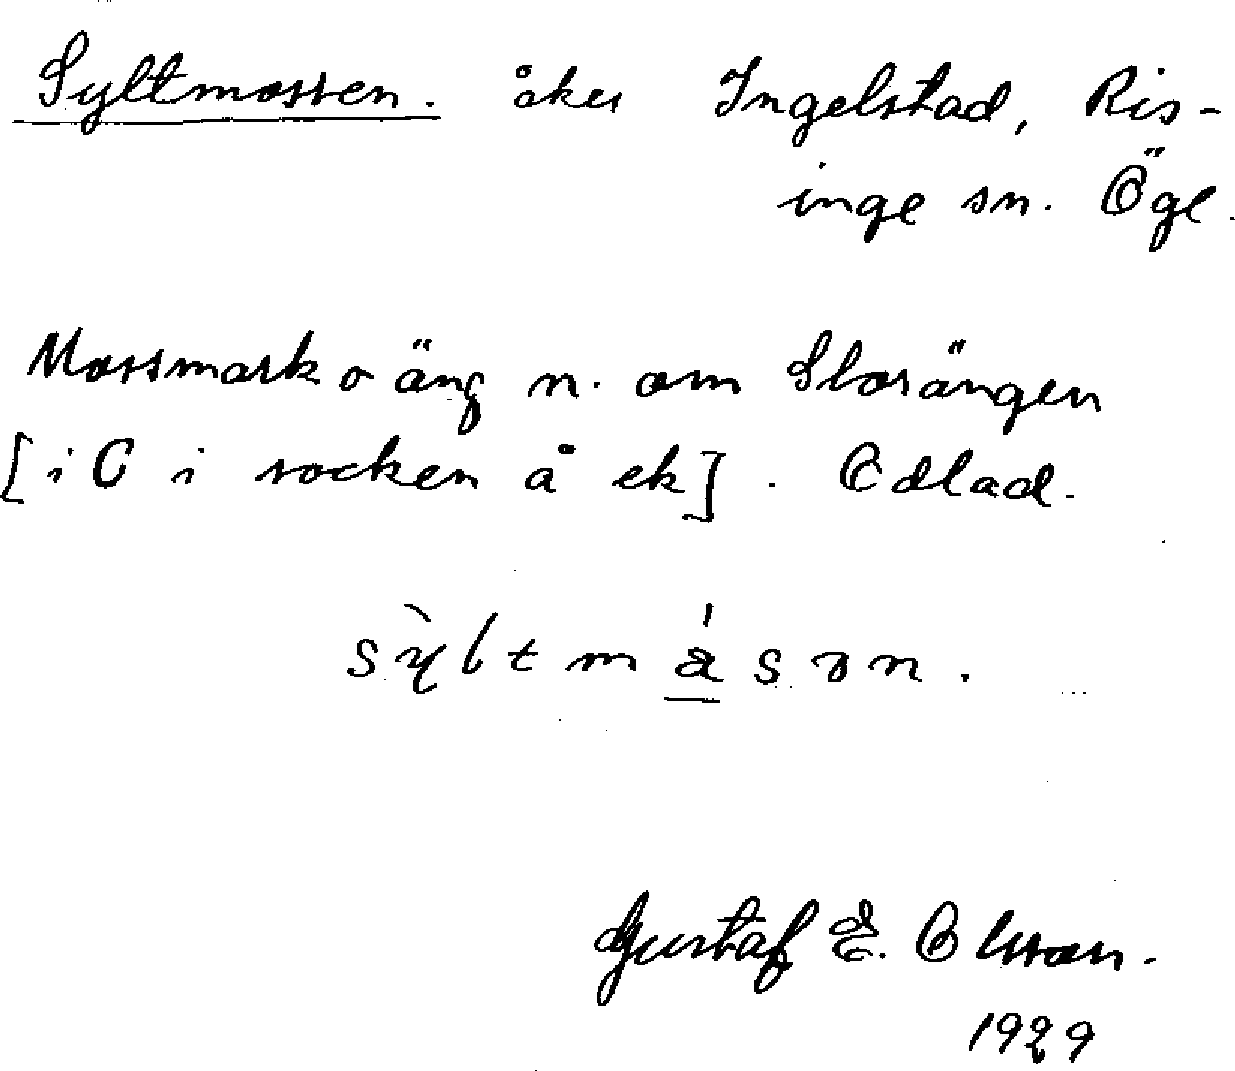 Syltmossen. åker Ingelstad, Ris-
inge sn. Ögl.
Mossmark o äng n. om Storängen
[i C i socken å ek]. Odlad.
sỳltmåsən.
Gustaf E. Olsson.
1929